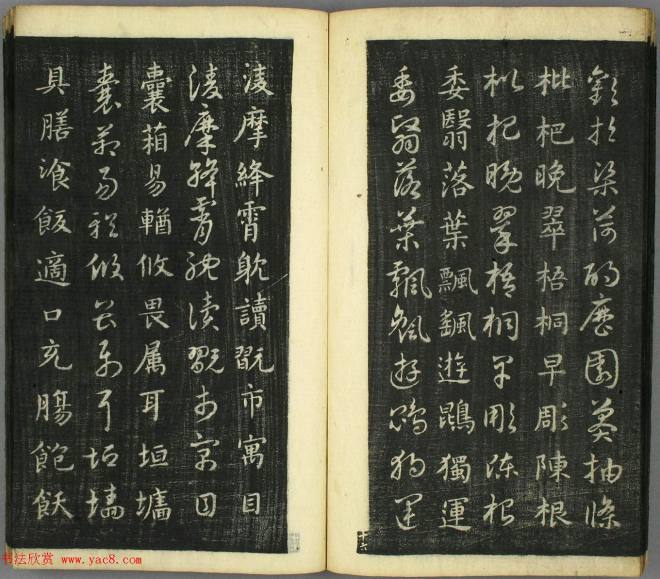 歡招渠荷的歷園莽抽條
枇杷晚翠梧桐早彫陳根
枇杷晚翠梧桐早彫陳根
委翳落葉飄颻遊鵾獨運
委翳落葉飄颻遊鵾獨運
十六
淩摩絳霄躭讀翫市寓目
淩摩絳霄躭讀翫市寓目
囊箱易輶攸畏属耳垣墻
囊箱易輶攸畏属耳垣墻
具膳湌飯適口充腸飽飫
书法欣赏 www.yac8.com